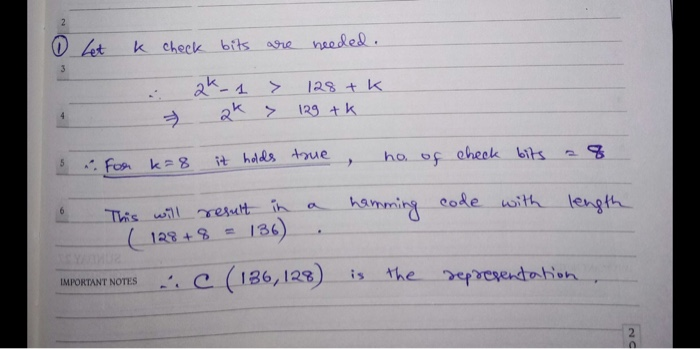 2
① Let k check bits are needed.
3
∴ 2^k - 1 > 128 + k
4
⇒ 2^k > 129 + k
5
∴ For k=8 it holds true, no. of check bits = 8
6
This will result in a hamming code with length
(128+8 = 136).
IMPORTANT NOTES
∴ C (136,128) is the representation.
2